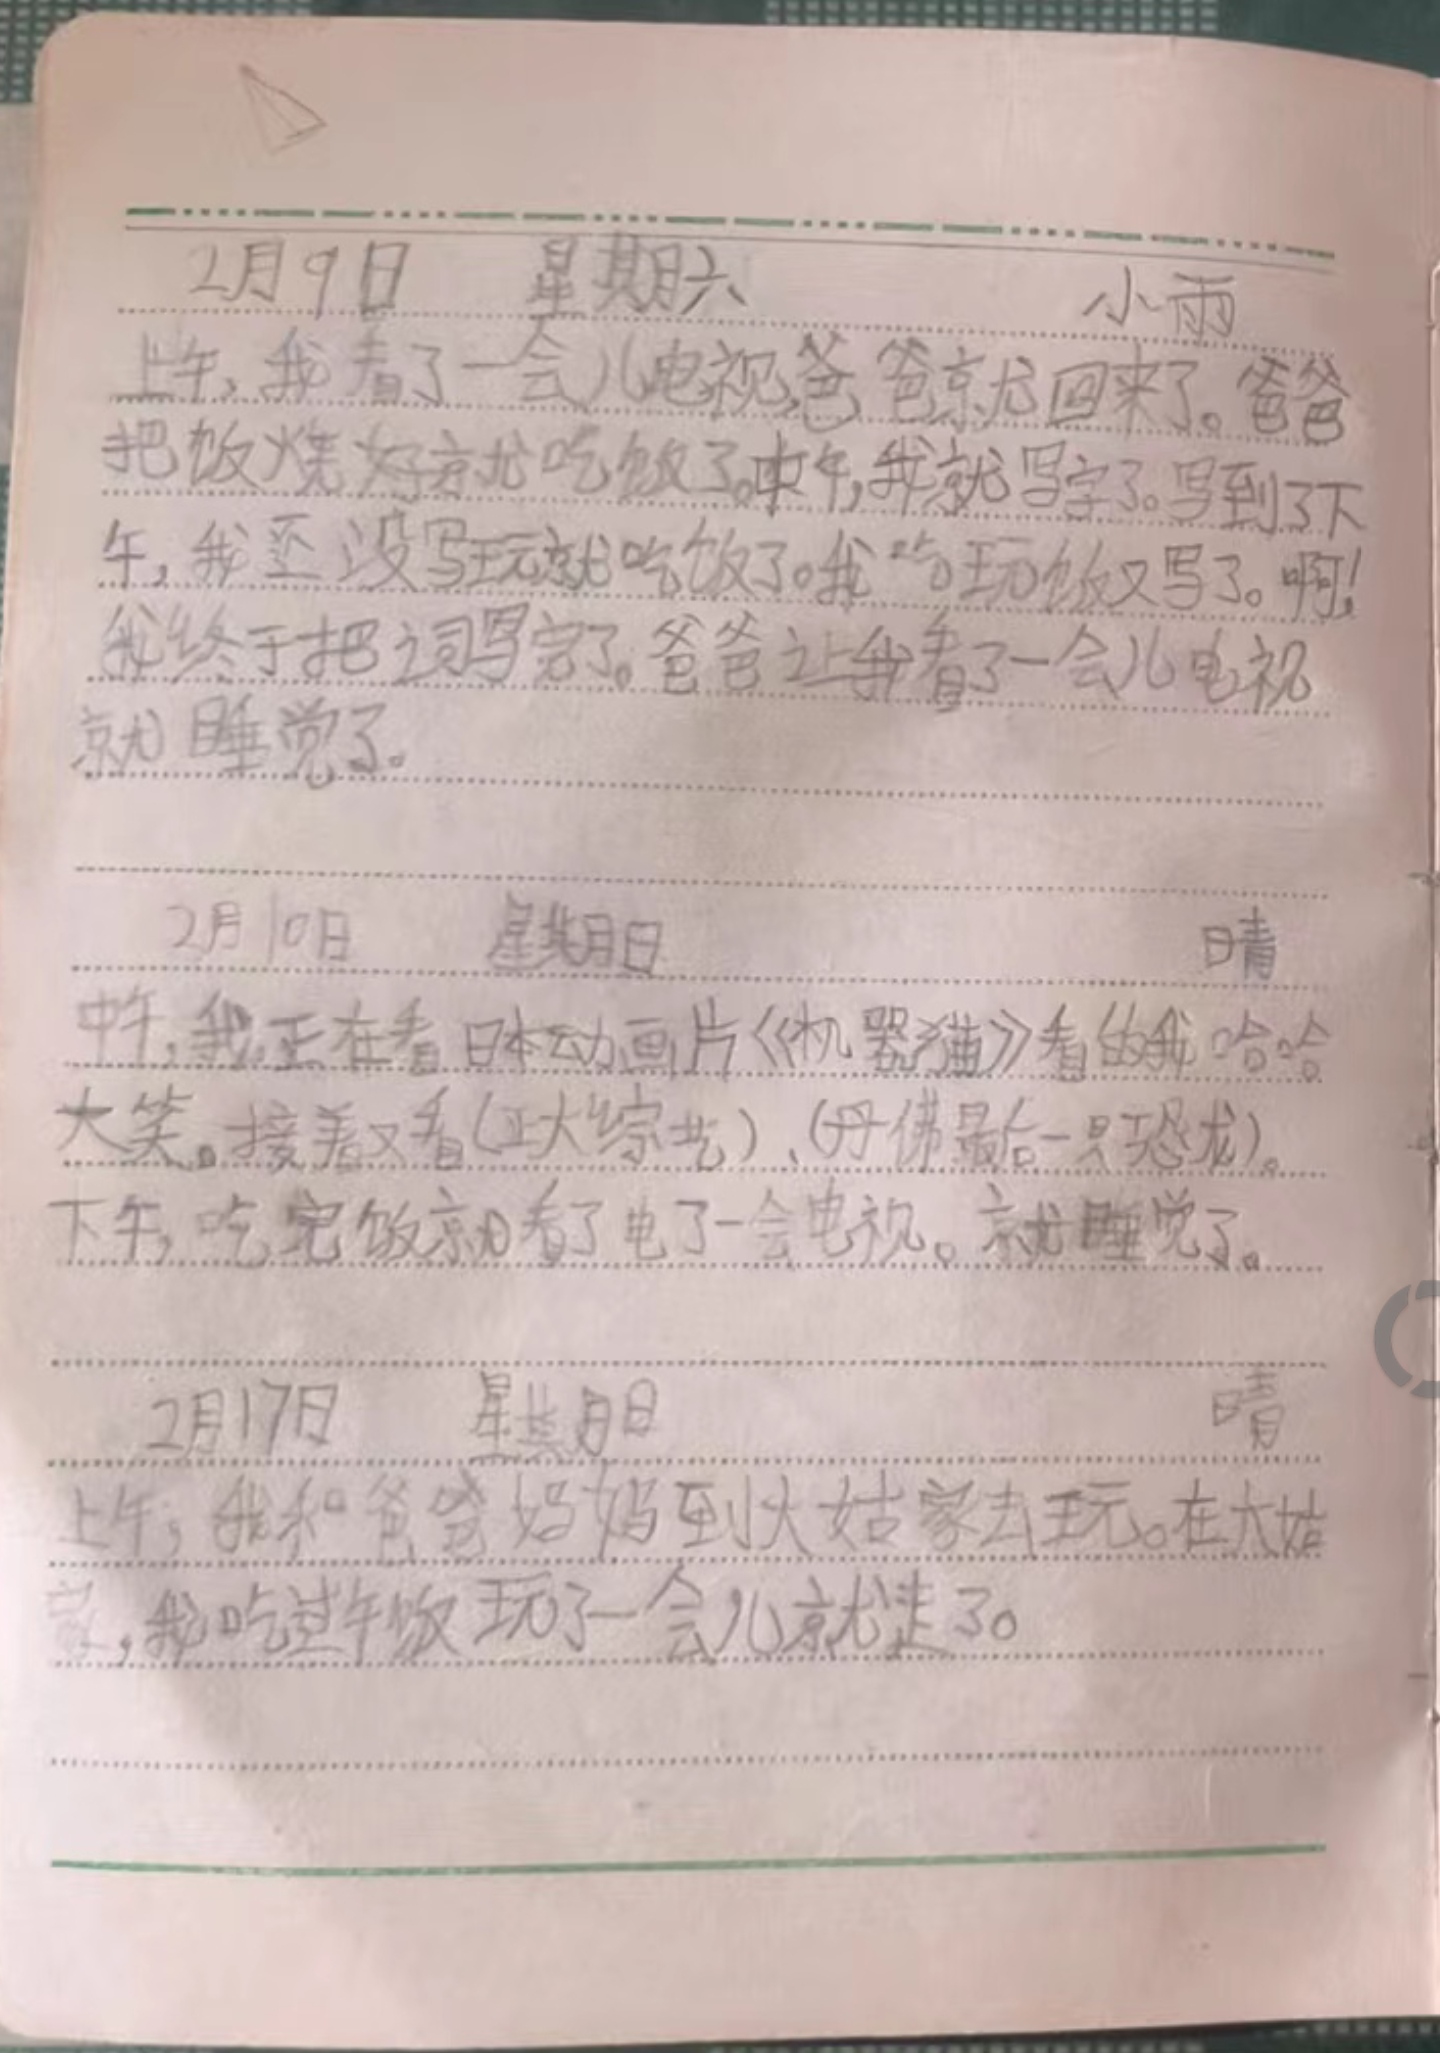 2月9日 星期六 小雨
上午,我看了一会儿电视,爸爸就回来了。爸爸
把饭烧好就吃饭了。中午,我就写字了。写到了下
午,我还没写玩就吃饭了。我吃玩饭又写了。啊!
我终于把词写完了。爸爸让我看了一会儿电视
就睡觉了。
2月10日 星期日 晴
中午,我正在看日本动画片《机器猫》看的我哈哈
大笑。接着又看(正大综艺)、(丹佛最后一只恐龙)。
下午,吃完饭就看了电了一会电视。就睡觉了。
2月17日 星期日 晴
上午,我和爸爸妈妈到大姑家去玩。在大姑
,我吃过午饭玩了一会儿就走了。